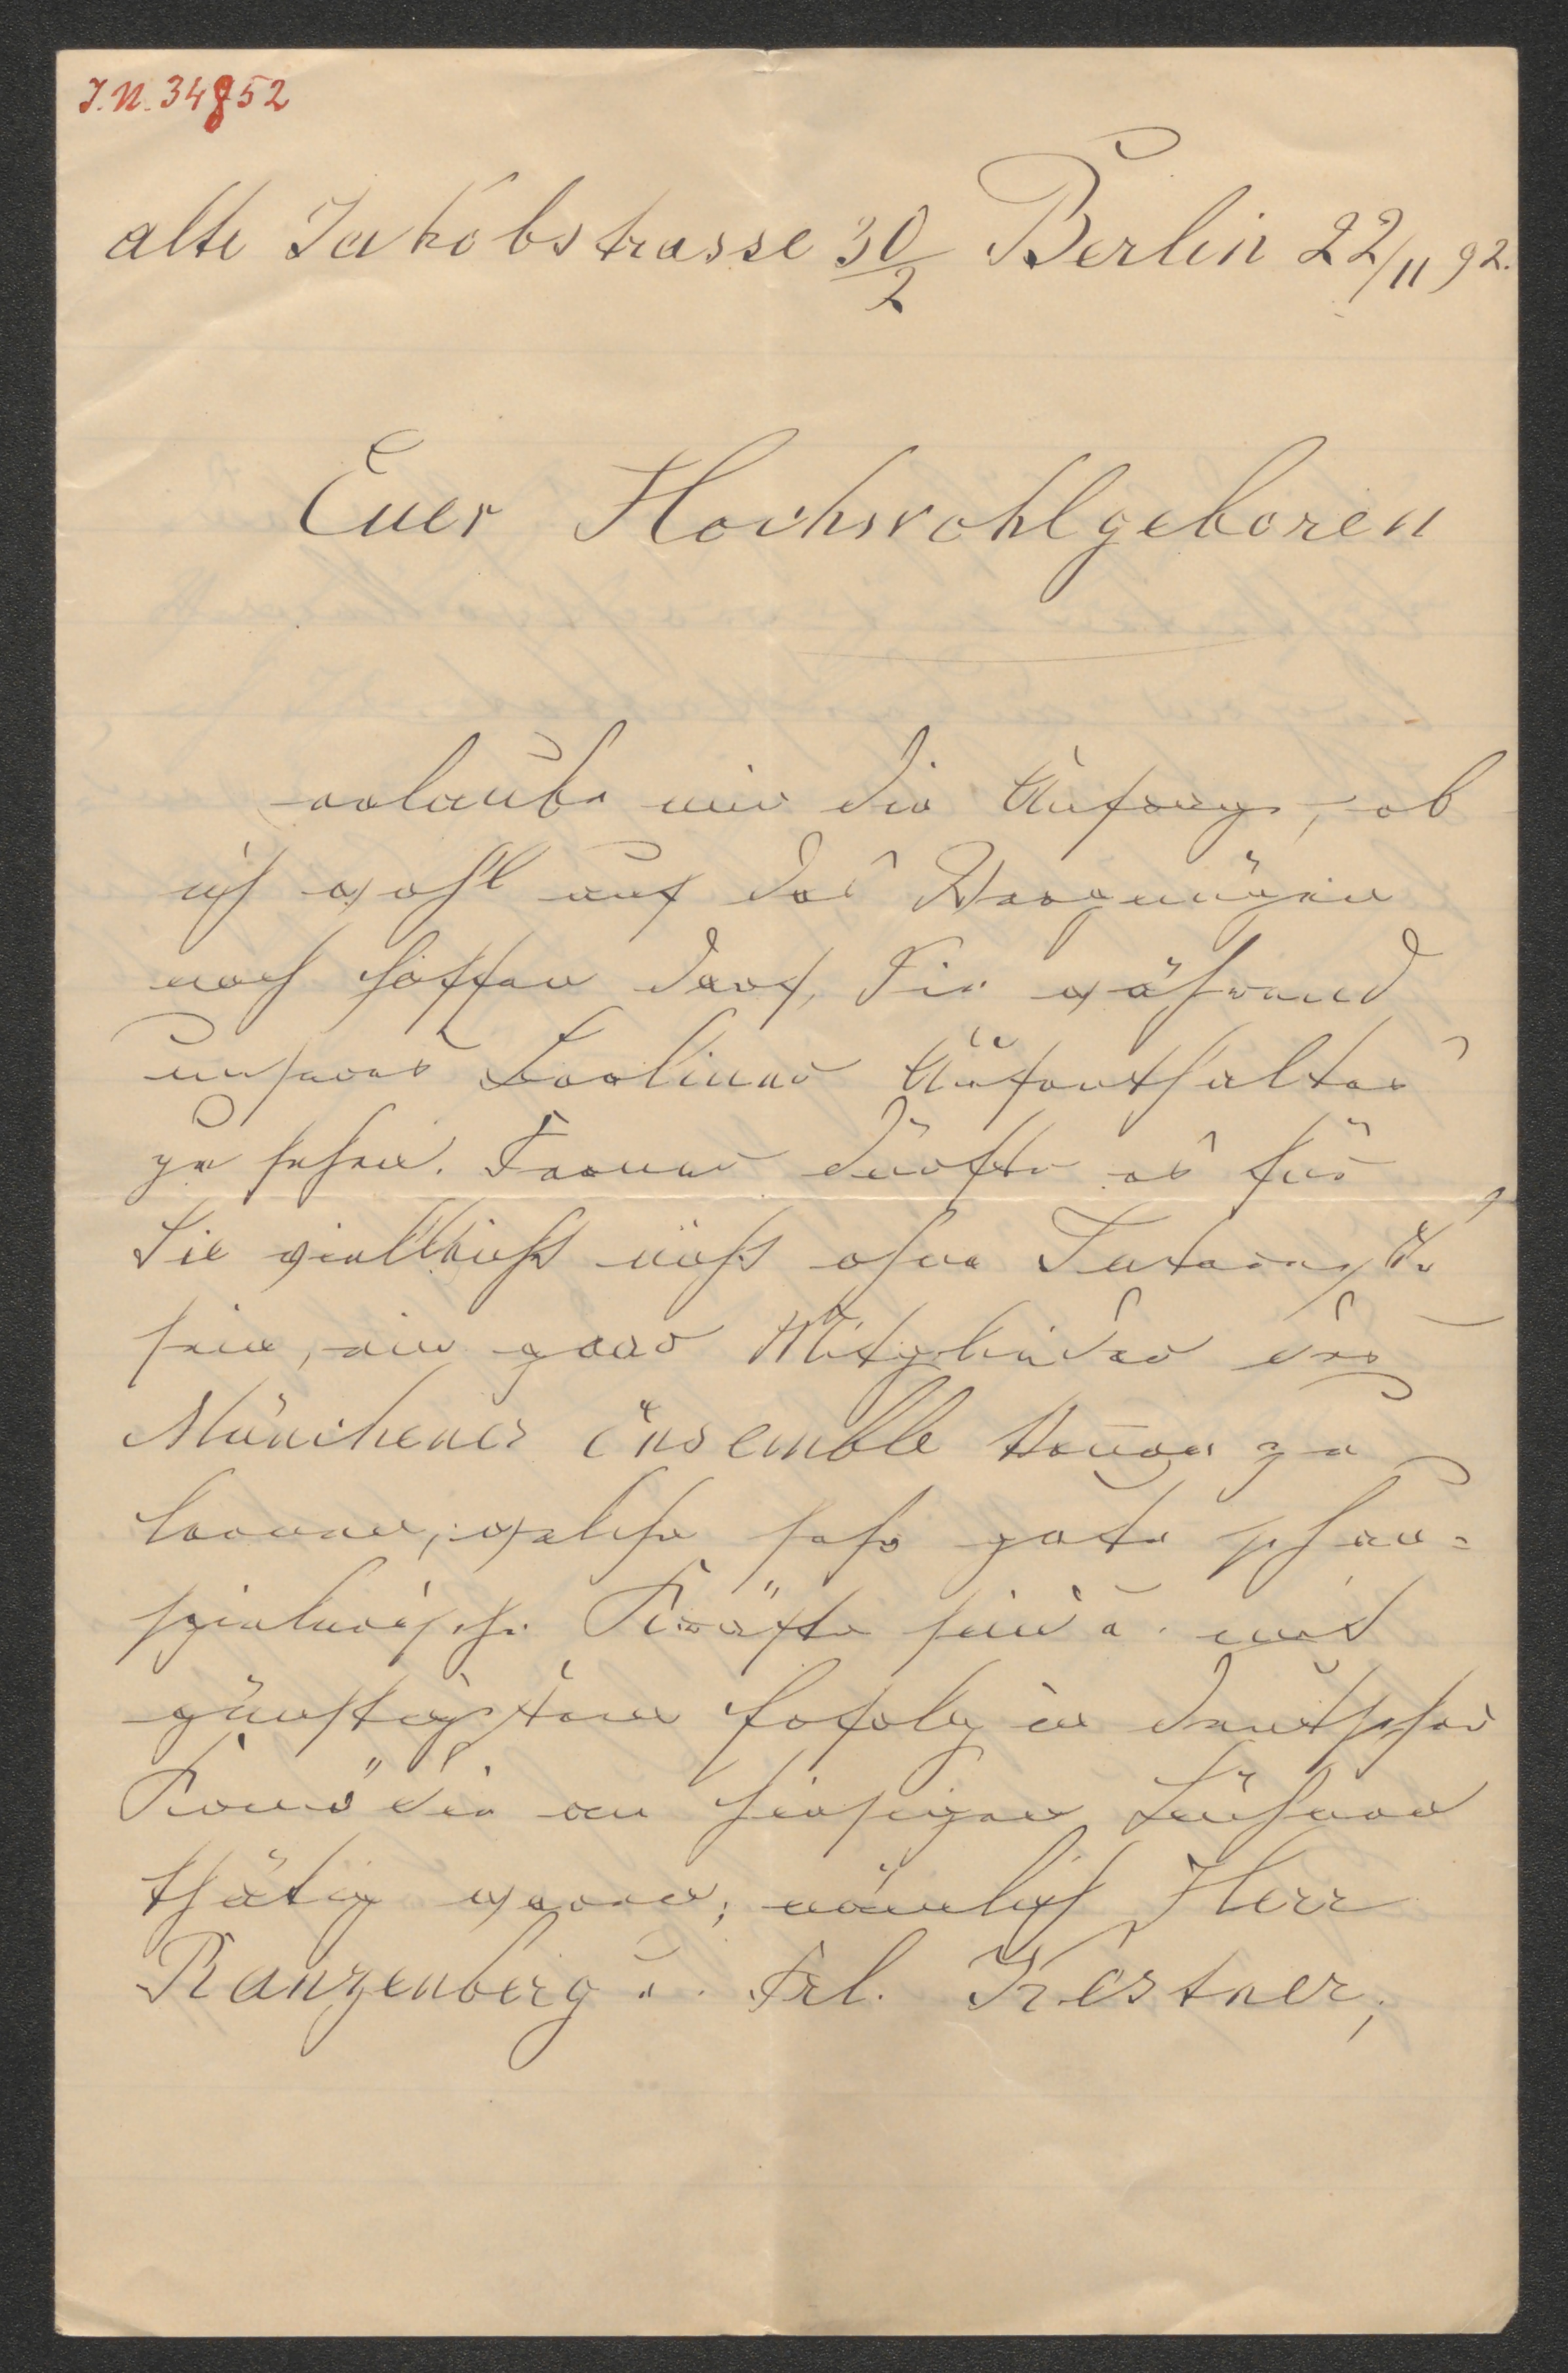 J.N. 34852
alte Jakobstrasse 30/2 Berlin 22/11 92.
Euer Hochwohlgeboren
erlaube mir die Anfrage, ob
ich wohl auf das Vergnügen
noch hoffen darf, Sie während
unseres Berliner Aufenthaltes
zu sehen. Ferner dürfte es für
Sie vielleicht nicht ohne Interesse
sein, ein paar Mitglieder des
Münchener Ensemble kennen zu
lernen, welche sehr gute schau=
spielerische Kräfte sind u. mit
günstigstem Erfolg in deutscher
Komödie an hiesigen Bühnen
thätig waren; nämlich Herr
Ranzenberg u. Frl. Kestner,